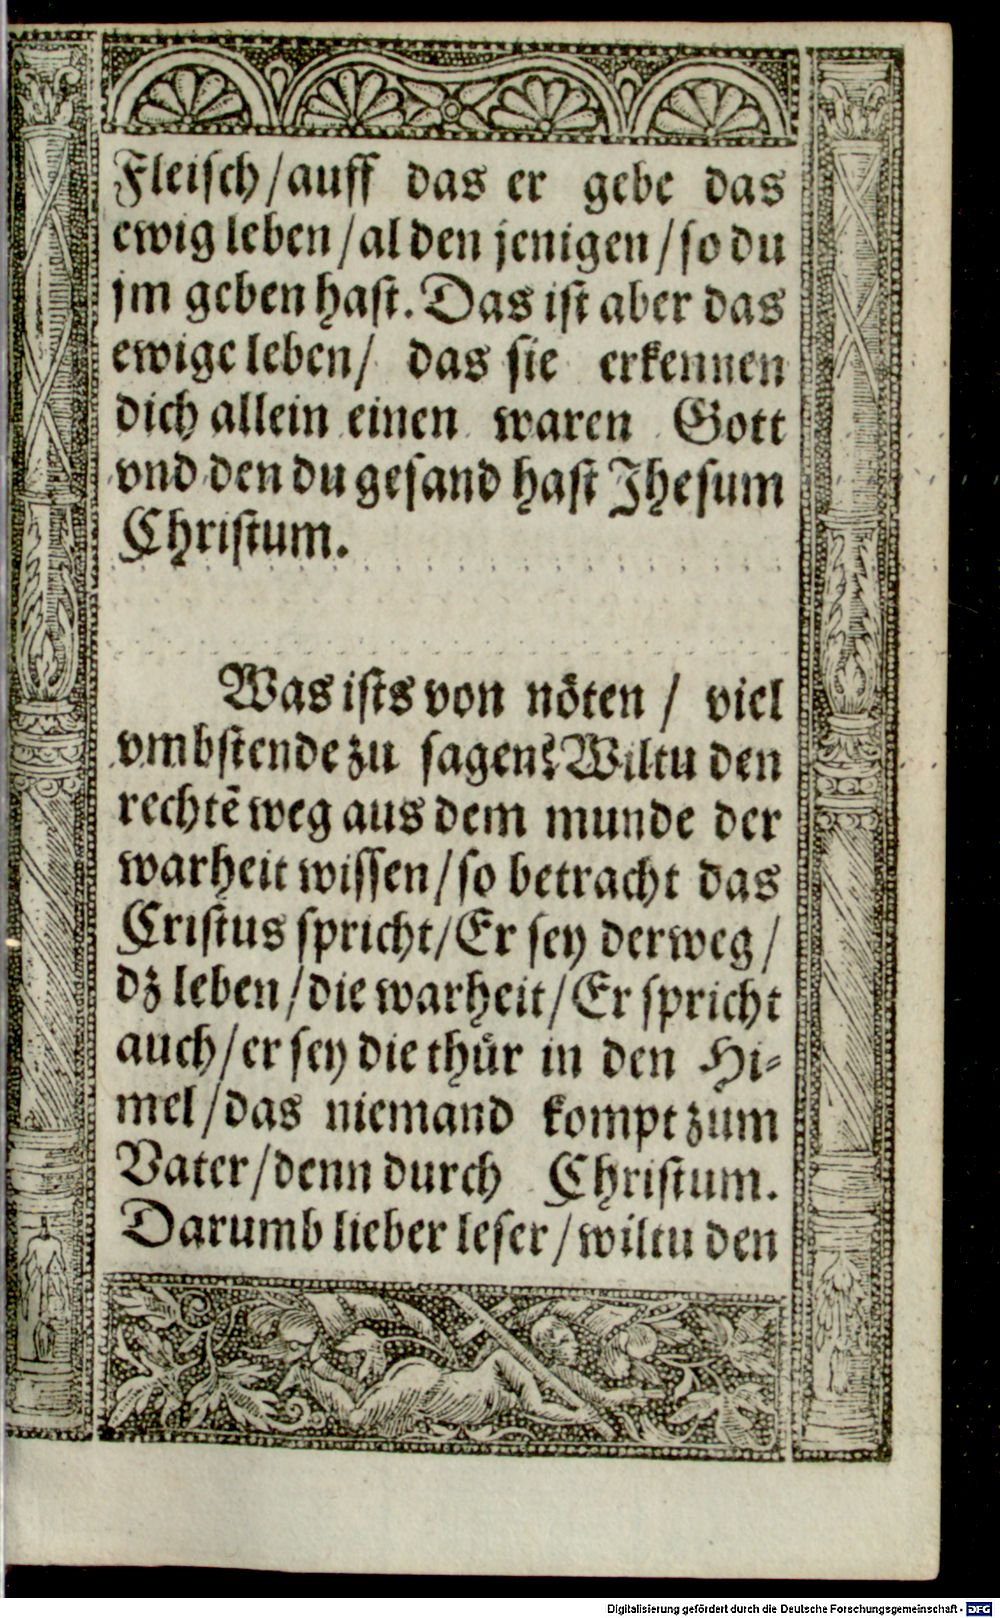 Fleisch/auff das er gebe das
ewig leben/al den jenigen/so du
jm geben hast. Das ist aber das
ewige leben/ das sie erkennen
dich allein einen waren Gott
vnd den du gesand hast Jhesum
Christum.
Was ists von nöten / viel
vmbstende zu sagen? Wiltu den
rechtē weg aus dem munde der
warheit wissen/so betracht das
Cristus spricht/Er sey der weg/
dz leben/die warheit/Er spricht
auch/er sey die thür in den Hi⸗
mel/das niemand kompt zum
Vater/denn durch Christum.
Darumb lieber leser/wiltu den
Digitalisierung gefördert durch die Deutsche Forschungsgemeinschaft - DFG